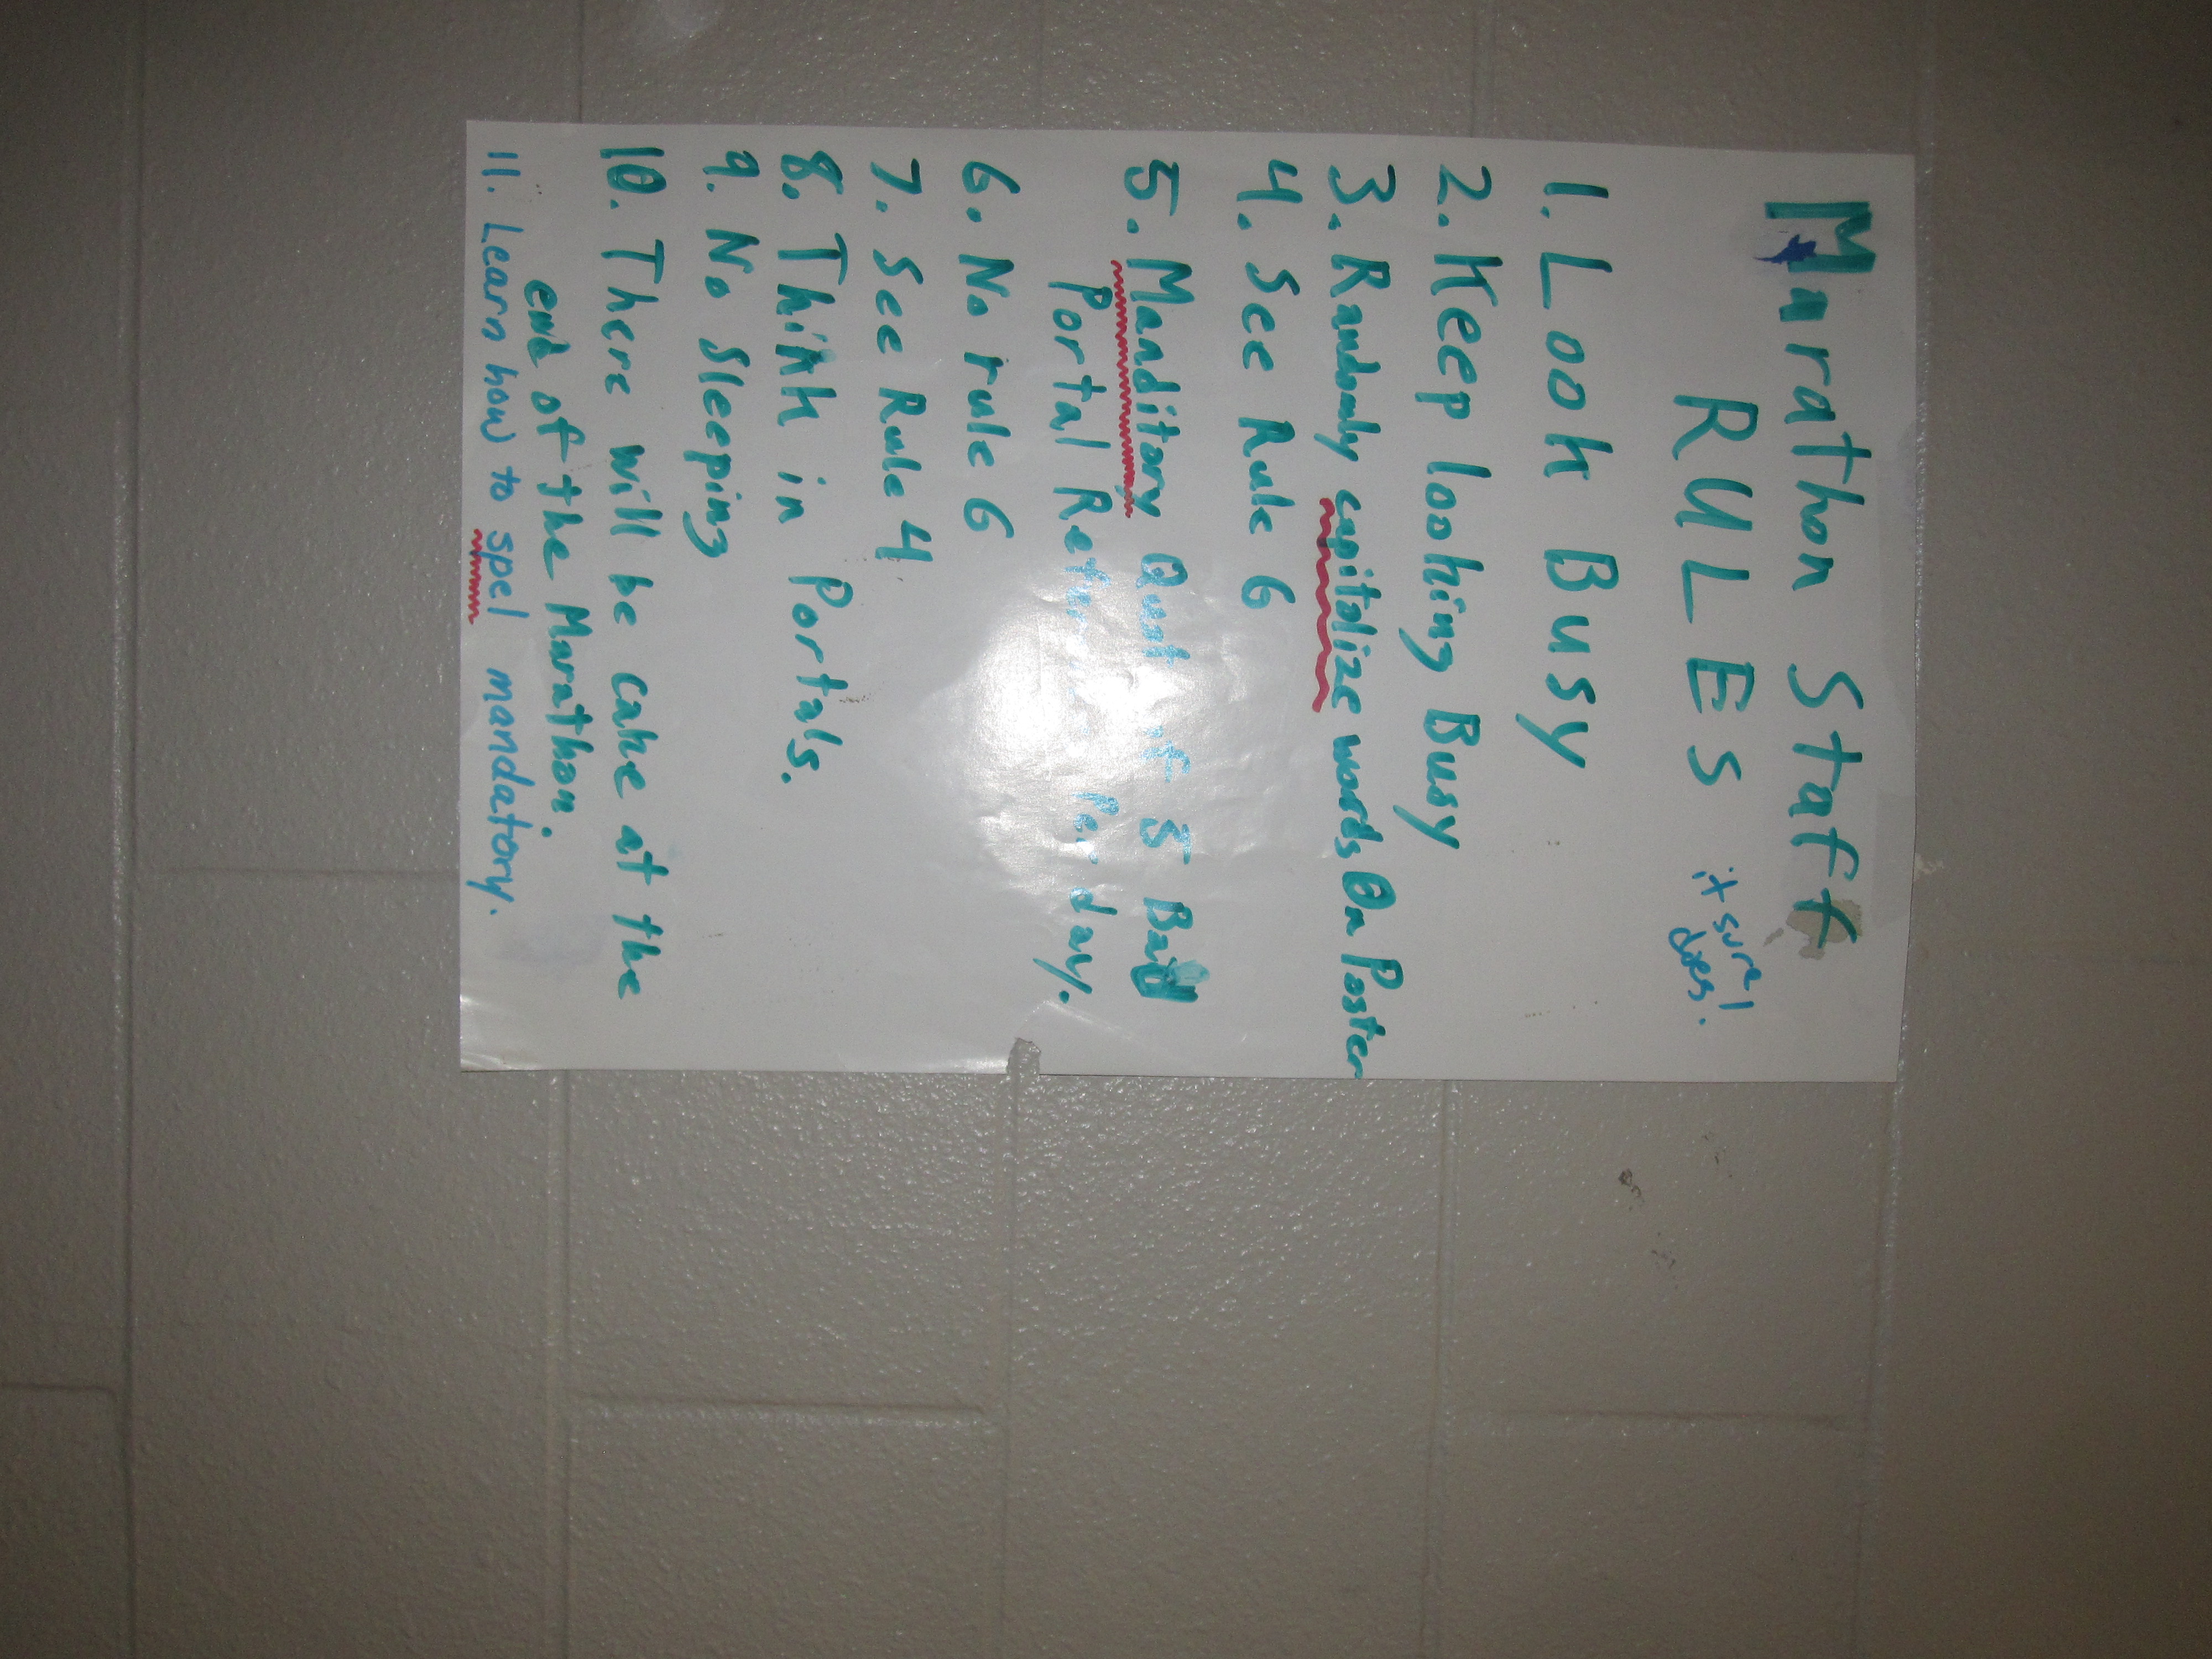 Marathon Staff
RULES
it sure
does!
1. Look Busy
2. Keep looking Busy
3. Randomly capitolize words On Poster
4. See Rule 6
5. Manditory Quot of 5 Bad
Portal Per day.
6. No rule 6
7. See Rule 4
8. Think in Portals.
9. No Sleeping
10. There will be Cake at the
end of the Marathon.
11. Learn how to spel mandatory.